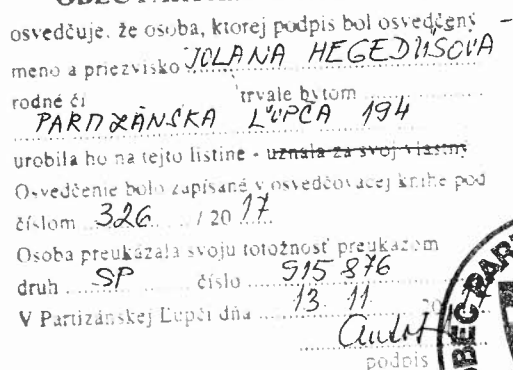 osvedčuje, že osoba, ktorej podpis bol osvedčený -
meno a priezvisko JOLANA HEGEDUŠOVÁ
rodné čí trvale bytom
PARTIZÁNSKA ĽUPČA 194
urobila ho na tejto listine - uznala za svoj vlastný
Osvedčenie bolo zapísané v osvedčovacej knihe pod
číslom 326 / 20 17.
Osoba preukázala svoju totožnosť preukazom
druh SP číslo 515 876
V Partizánskej Ľupči dňa 13. 11. 20
podpis
OBEC PAR